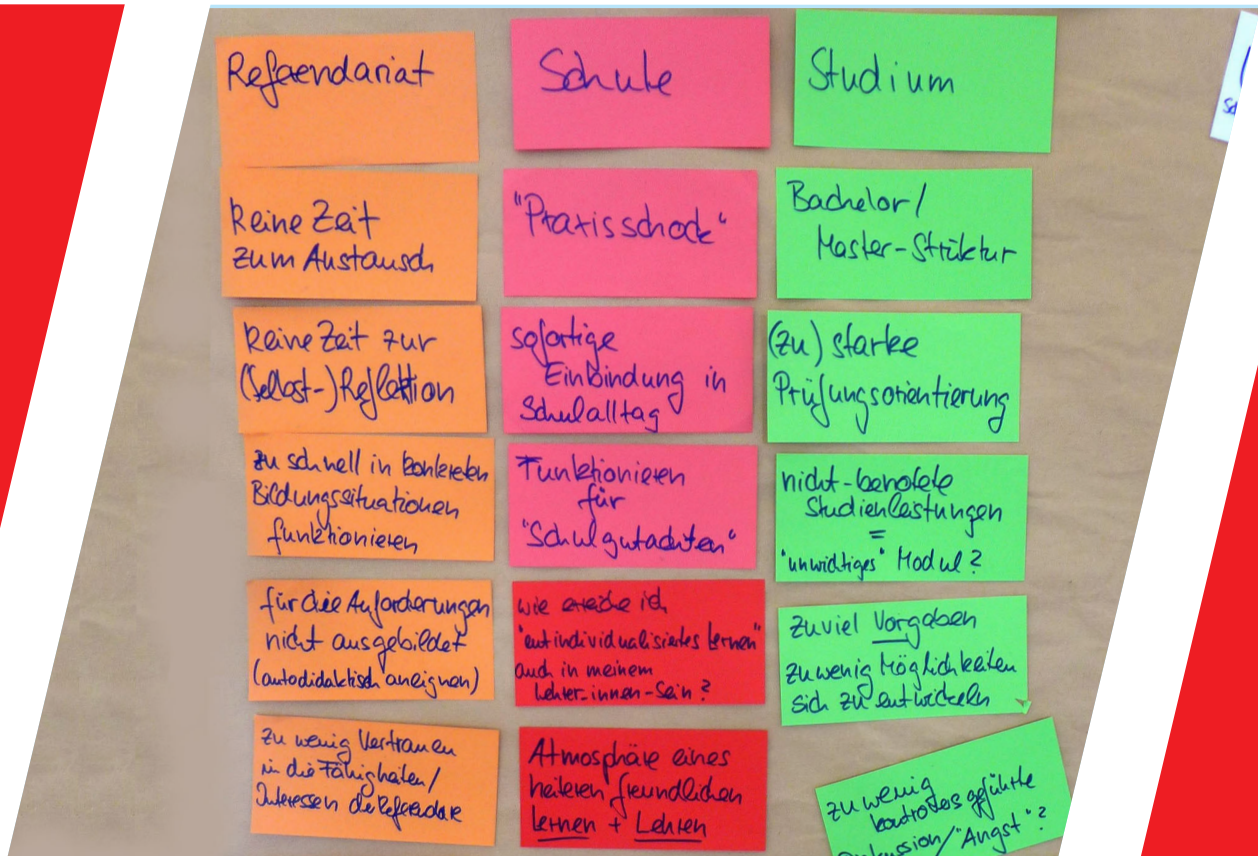 Refaendariat
keine Zeit
zum Austausch
keine Zeit zur
(Selbst-)Reflektion
zu schnell in konkreten
Bildungssituationen
funktionieren
für die Anforderungen
nicht ausgebildet
(autodidaktisch aneignen)
zu wenig Vertrauen
in die Fähigkeiten/
Interessen der Referendare
Schule
"Praxisschock"
sofortige
Einbindung in
Schulalltag
Funktionieren
für
"Schulgutachten"
wie erreiche ich
"entindividualisiertes lernen"
auch in meinem
Lehrer-innen-Sein?
Atmosphäre eines
heiteren freundlichen
Lernen + Lehren
Studium
Bachelor/
Master-Struktur
(zu) starke
Prüfungsorientierung
nicht-benotete
Studienleistungen
=
"unwichtiges" Modul?
zuviel Vorgaben
zu wenig Möglichkeiten
sich zu entwickeln
zu wenig
kontrovers geführte
"Angst"?